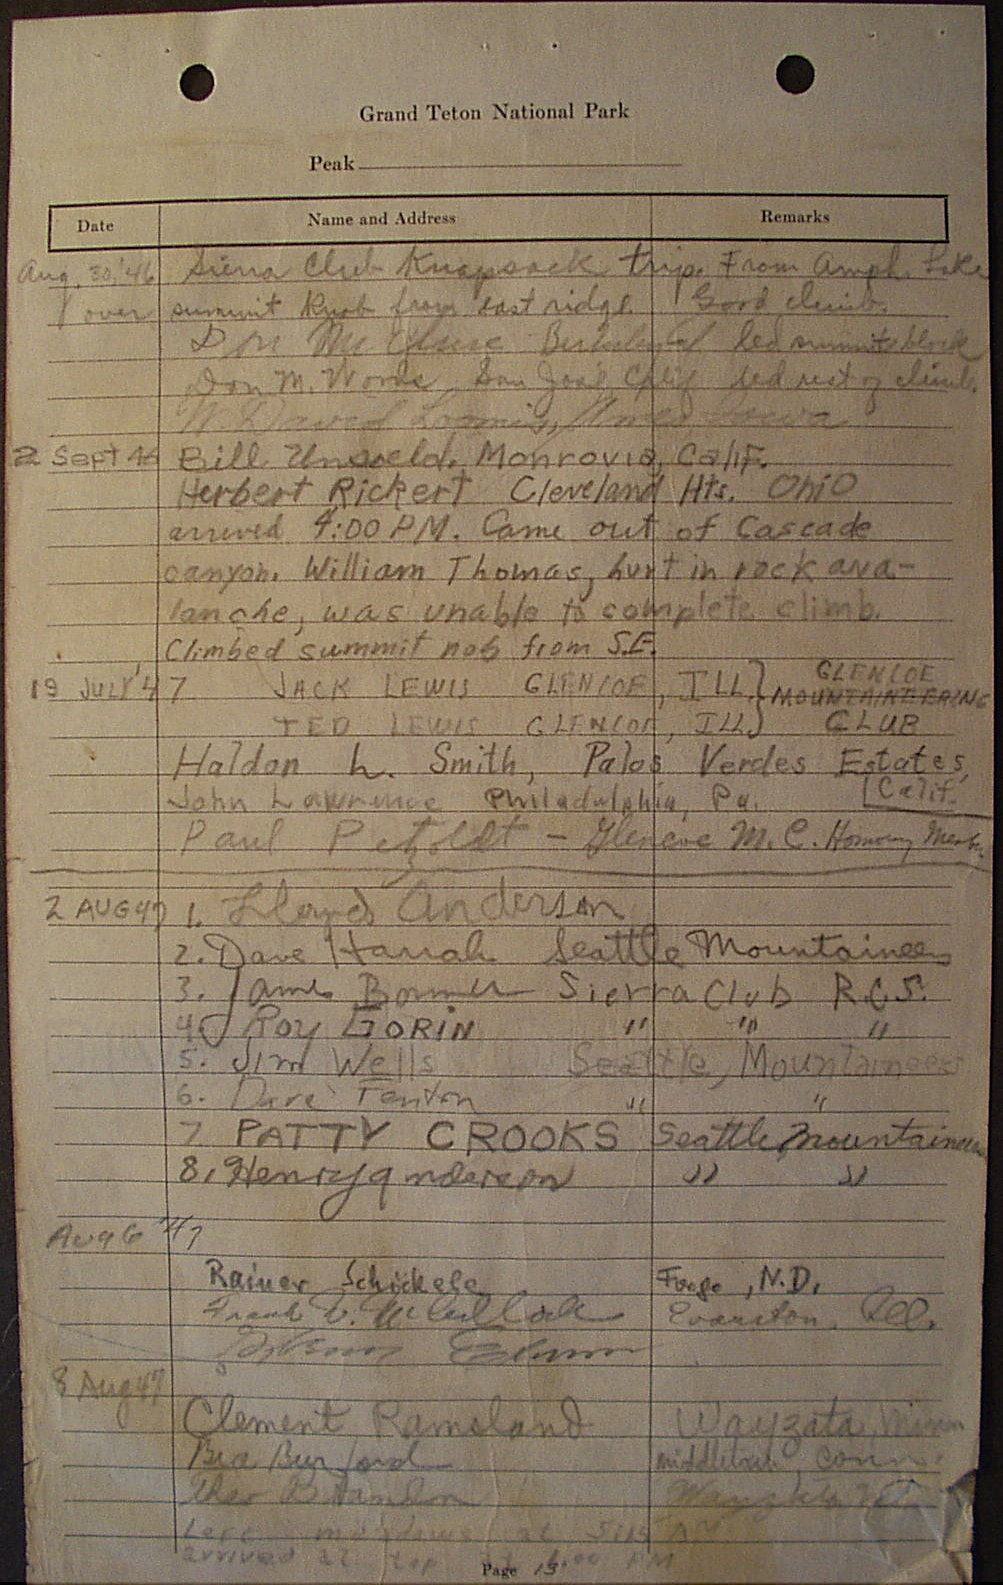 Grand Teton National Park
Peak
Date Name and Address Remarks
Aug. 30, '46 Sierra Club Knapsack trip. From Amph. Lake
over summit Knob from east ridge. Good climb.
Don Berkeley led summit block
Don M. Woods, San Jose, Calif led rest of climb.
W. David Loomis, Ames, Iowa
2 Sept 46 Bill Unsoeld, Monrovia, Calif.
Herbert Rickert Cleveland Hts. Ohio
arrived 4:00 P.M. Came out of Cascade
canyon. William Thomas, hurt in rock ava-
lanche, was unable to complete climb.
Climbed summit nob from S.E.
19 JULY '47 JACK LEWIS GLENCOE, ILL } GLENCOE MOUNTAINEERING
TED LEWIS GLENCOE, ILL } CLUB
Haldon L. Smith, Palos Verdes Estates,
John Lawrence Philadelphia, Pa. Calif.
Paul Petzoldt - Glencoe M.C. Honorary Member
2 AUG 47 1. Lloyd Anderson
2. Dave Harrah Seattle Mountaineers
3. James Sierra Club R.C.S.
4. Roy GORIN " " "
5. Jim Wells Seattle, Mountaineers
6. Dave Fenton " "
7 PATTY CROOKS Seattle, Mountaineers
8. Henry Anderson " "
Aug 6 '47
Rainer Schickele Fargo, N.D.
Frank Evanston, Ill.
8 Aug 47
Clement Ramsland Wayzata, Minn
Bea Burford Conn.
Wayzata
Left meadows at
arrived at top PM
Page 13